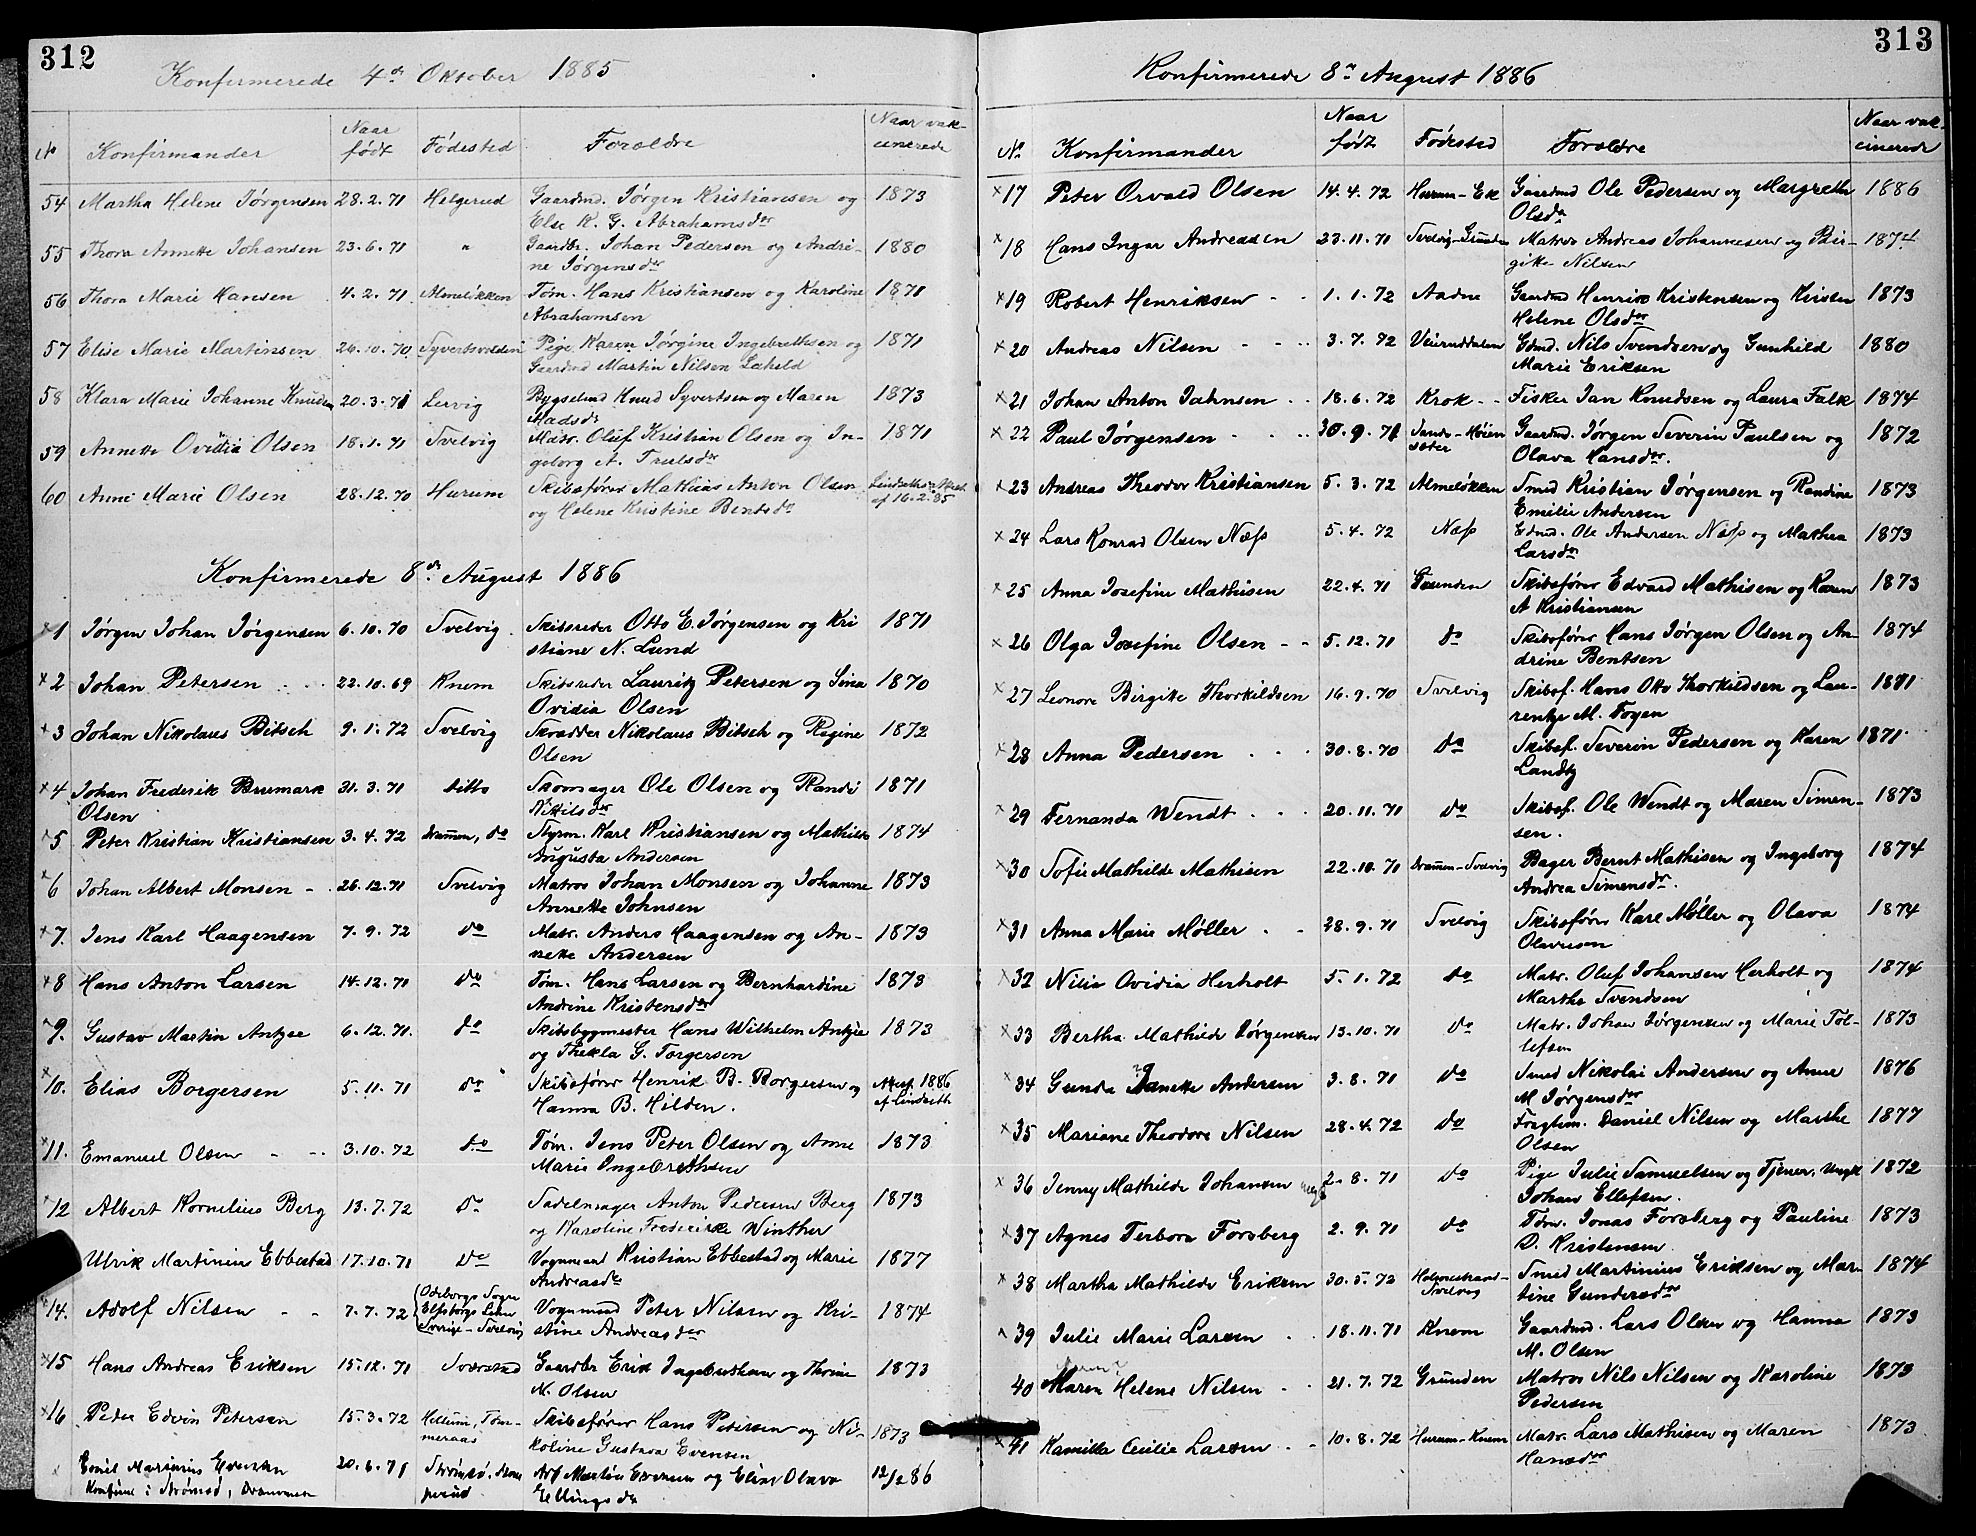 312
Konfirmerede 4de Oktober 1885
No Konfirmander Naar født Fødested Forældre Naar vakcinerede
54 Martha Helene Jørgensen 28.2.71 Helgerud Gaardmd. Jørgen Kristiansen og 1873
Else K. G. Abrahamsdr
55 Thora Annette Johansen 23.6.71 " Gaardbr. Johan Pedersen og Andri- 1880
ne Jørgensdr
56 Thora Marie Hansen 4.2.71 Almeløkken Tøm. Hans Kristiansen og Karoline 1871
Abrahamsen
57 Elise Marie Martinsen 26.10.70 Syvertsvolden Pige Karen Jørgine Ingebrethsen og 1871
Gaardmd Martin Nilsen
58 Klara Marie Johanne Knudsen 20.3.71 Lervig Bygselmd Knud Syvertsen og Maren 1873
Madsdr
59 Annette Ovidia Olsen 18.1.71 Svelvig Matr. Oluf Kristian Olsen og In- 1871
geborg A. Trulsdr
60 Anne Marie Olsen 28.12.70 Hurum Skibsfører Mathias Anton Olsen
og Helene Kristine Bentsdr af 16.2.85
Konfirmerede 8de August 1886
x1 Jørgen Johan Jørgensen 6.10.70 Svelvig Skibsreder Otto E. Jørgensen og Kri 1871
stiane N. Lund
x2 Johan Petersen 22.10.69 Knem Skibsreder Lauritz Petersen og Lina 1870
Ovidia Olsen
x3 Johan Nikolaus Bitsch 9.1.72 Svelvig Skrædder Nikolaus Bitsch og Regine 1872
Olsen
x4 Johan Frederik Brumark 31.3.71 ditto Skomager Ole Olsen og Randi 1871
Olsen Nikilsdr
x5 Peter Kristian Kristiansen 3.4.72 Drammen, do Styrm. Karl Kristiansen og Mathilde 1874
Augusta Andersen
x6 Johan Albert Monsen 26.12.71 Svelvig Matros Johan Monsen og Johanne 1873
Annette Johnsen
x7. Jens Karl Haagensen 7.9.72 do Matr. Anders Haagensen og An- 1873
nette Andersen
x8 Hans Anton Larsen 14.12.71 do Tøm. Hans Larsen og Bernhardine 1873
Andrine Kristensdr
x9. Gustav Martin Antzee 6.12.71. do Skibsbygmester Hans Wilhelm Antzée 1873
og Thekla G. Torgersen
x10. Elias Borgersen 5.11.71 do Skibsfører Henrik B. Borgersen og Attest 1886
Hanna B. Hilden. af Lindseth
x11. Emanuel Olsen 3.10.72 do Tøm. Jens Peter Olsen og Anne 1873
Marie Ingebrethsen
x12 Albert Kornelius Berg 13.7.72 do Sadelmager Anton Pedersen Berg 1873
og Karoline Frederikke Winther
Ulrik Martinius Ebbestad 17.10.71 do Vognmand Kristian Ebbestad og Marie 1877
Andreasdr
x14. Adolf Nilsen 7.7.72 Odeborgs Sogn Elfsborgs Len Sverige - Svelvig Vognmand Peter Nilsen og Kri- 1874
stine Andreasdr
x15 Hans Andreas Eriksen 15.12.71 Sværstad Gaardbr Erik Ingebrethsen og Thrine 1873
M. Olsen
x16 Peder Edvin Petersen 15.3.72 Hellum, Tømmeraas Skibsfører Hans Petersen og Ni- 1873
koline Gustava Evensen
Emil Marinius Evensen 20.6.71 Strømsø, Arb Martin Evensen og Eline Olava 12/2 86
Konfirm i Strømsø, Drammen Ellingsdr
313
Konfirmerede 8de August 1886
No Konfirmander Naar født Fødested Forældre Naar vakcinerede
x17 Peter Orvald Olsen 14.4.72 Hurum - Ek Gaardmd Ole Pedersen og Margrethe 1886
Olsdr
x18 Hans Ingar Andreassen 23.11.71 Svelvig-Grunden Matros Andreas Johannesen og Bir- 1874
gitte Nilsen
x19 Robert Henriksen 1.1.72 Aadne Gaardmd Henrik Kristensen og Kirsten 1873
Helene Olsdr
x20 Andreas Nilsen 3.7.72 Veiruddalen Gdmd. Nils Svendsen og Gunhild 1880
Marie Eriksen
x21 Johan Anton Jahnsen 18.6.72 Krok Fisker Jan Knudsen og Laura Falk 1874
x22 Paul Jørgensen 30.9.71 Sande - Høiensæter Gaardmd. Jørgen Severin Paulsen og 1872
Olava Hansdr.
x23 Andreas Theodor Kristiansen 5.3.72 Almeløkken Smed Kristian Jørgensen og Randine 1873
Emilie Andersen
x24 Lars Konrad Olsen Næss 5.4.72 Næss Gdmd. Ole Andersen Næss og Mathea 1873
Larsdr
x25 Anna Josefine Mathisen 22.4.71 Grunden Skibsfører Edvard Mathisen og Karen 1873
A Kristiansen
x26 Olga Josefine Olsen 5.12.71 do Skibsfører Hans Jørgen Olsen og An- 1874
drine Bentsen
x27 Leonore Birgitte Thorkildsen 16.9.70 Svelvig Skibsf. Hans Otto Thorkildsen og Lau- 1871
rentze M. Foyen
x28 Anna Pedersen 30.8.70 do Skibsf. Severin Pedersen og Karen 1871
Landtz
x29 Fernanda Wendt 20.11.71 do Skibsf. Ole Wendt og Maren Simen- 1873
sen.
x30 Sofie Mathilde Mathisen 22.10.71 Drammen-Svelvig Bager Bernt Mathisen og Ingeborg 1874
Andrea Simensdr.
x31 Anna Marie Møller 28.9.71 Svelvig Skibsfører Karl Møller og Olava 1874
Olavesen
x32 Nilia Ovidia Herholt 5.1.72 do Matr. Oluf Johansen Herholt og 1874
Marthe Svendsen
x33 Bertha Mathilde Jørgensen 13.10.71 do Matr. Johan Jørgensen og Marie Tol- 1873
lefsen
x34 Gunda Janette Andersen 3.8.71 do Smed Nikolai Andersen og Anne 1876
M Jørgensdr
x35 Mariane Theodore Nilsen 28.4.72 do Fragtm. Daniel Nilsen og Marthe 1877
Olsen
x36 Jenny Mathilde Johansen 2.8.71 do Pige Julie Samuelsen og Tjener, Ungk 1872
Johan Ellefsen.
x37 Agnes Terbora Forsberg 2.9.71 do Tøm. Jonas Forsberg og Pauline 1873
D. Kristensen
x38 Martha Mathilde Eriksen 30.5.72 Holmestrand-Svelvig Smed Martinius Eriksen og Mar- 1874
tine Gundersdr
x39 Julie Marie Larsen 18.11.71 Knem Gaardmd. Lars Olsen og Hanna 1873
M. Olsen
40 Maren Helene Nilsen 21.7.72 Grunden Matros Nils Nilsen og Karoline 1873
Pedersen
x41 Kamilla Cecilie Larsen 10.8.72 Hurum-Knem Matr. Lars Mathisen og Maren 1873
Hansdr